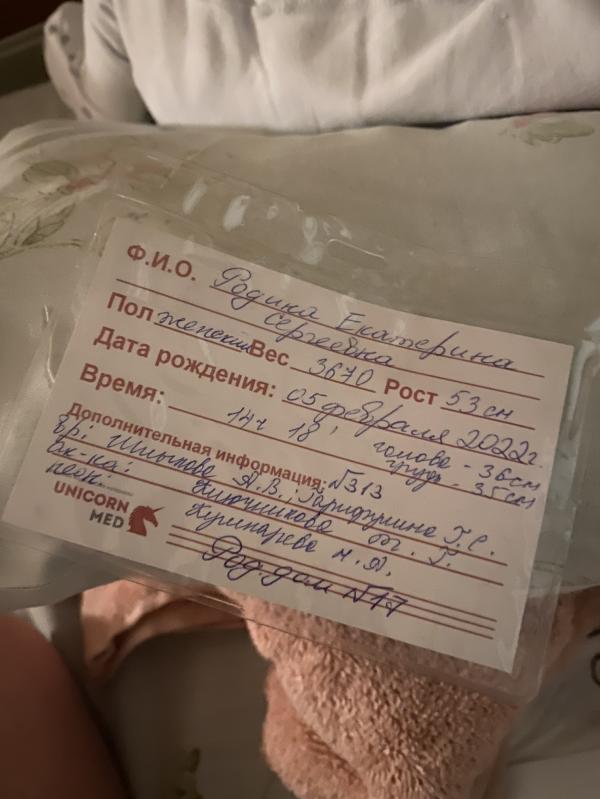 Ф.И.О. Родина Екатерина
Сергеевна
Пол женский Вес 3670 Рост 53 см
Дата рождения: 05 февраля 2022г.
Время: 14ч 18' голова - 36см
грудь - 35см
Дополнительная информация: №313
вр: А.В., Т.С.
ак-ка: Ключникова Т. Г.
неон: Кушнарева Н. Я.
UNICORN
MED
Род. дом №17